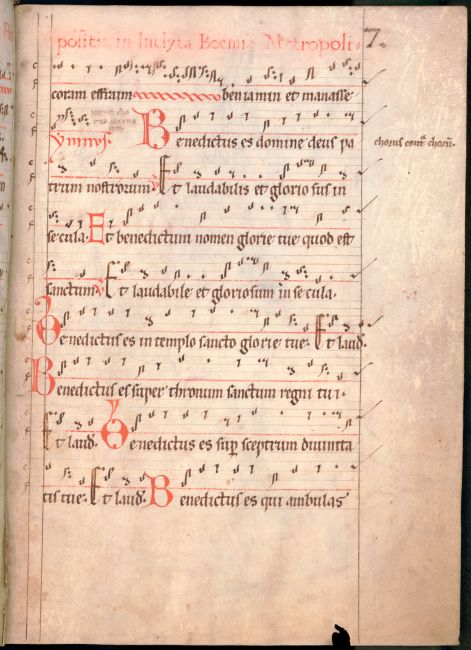 positis, in Inclyta Boemię Metropoli- 7.
coram effraim beniamin et manasse
Ymnus. Benedictus es domine deus pa
chorus contra chorum
trum nostrorum. Et laudabilis et gloriosus in
secula. Et benedictum nomen glorie tue quod est
sanctum. Et laudabile et gloriosum in secula.
Benedictus es in templo sancto glorie tue. Et laud.
Benedictus es super thronum sanctum regni tui.
Et laud. Benedictus es sup sceptrum divinita
tis tue. Et laud. Benedictus es qui ambulas